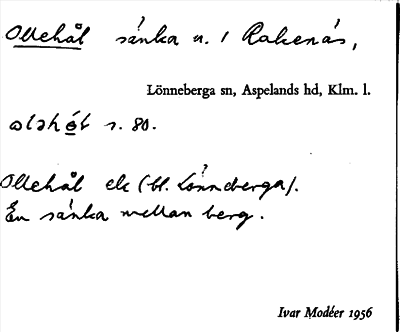 Ollehål sänka n. / Rakenäs,
Lönneberga sn, Aspelands hd, Klm. l.
s. 80.
Ollehål ek (bl. Lönneberga).
En sänka mellan berg.
Ivar Modéer 1956